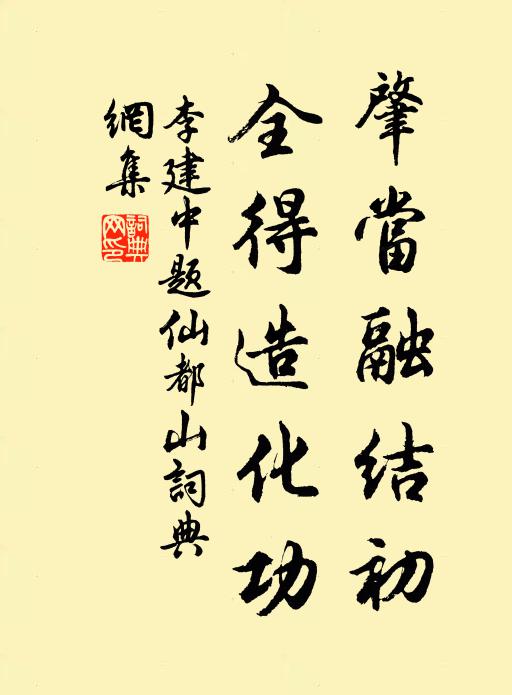 肇當融結初
全得造化功
李建中題仙都山詞典
網集
詞典網印